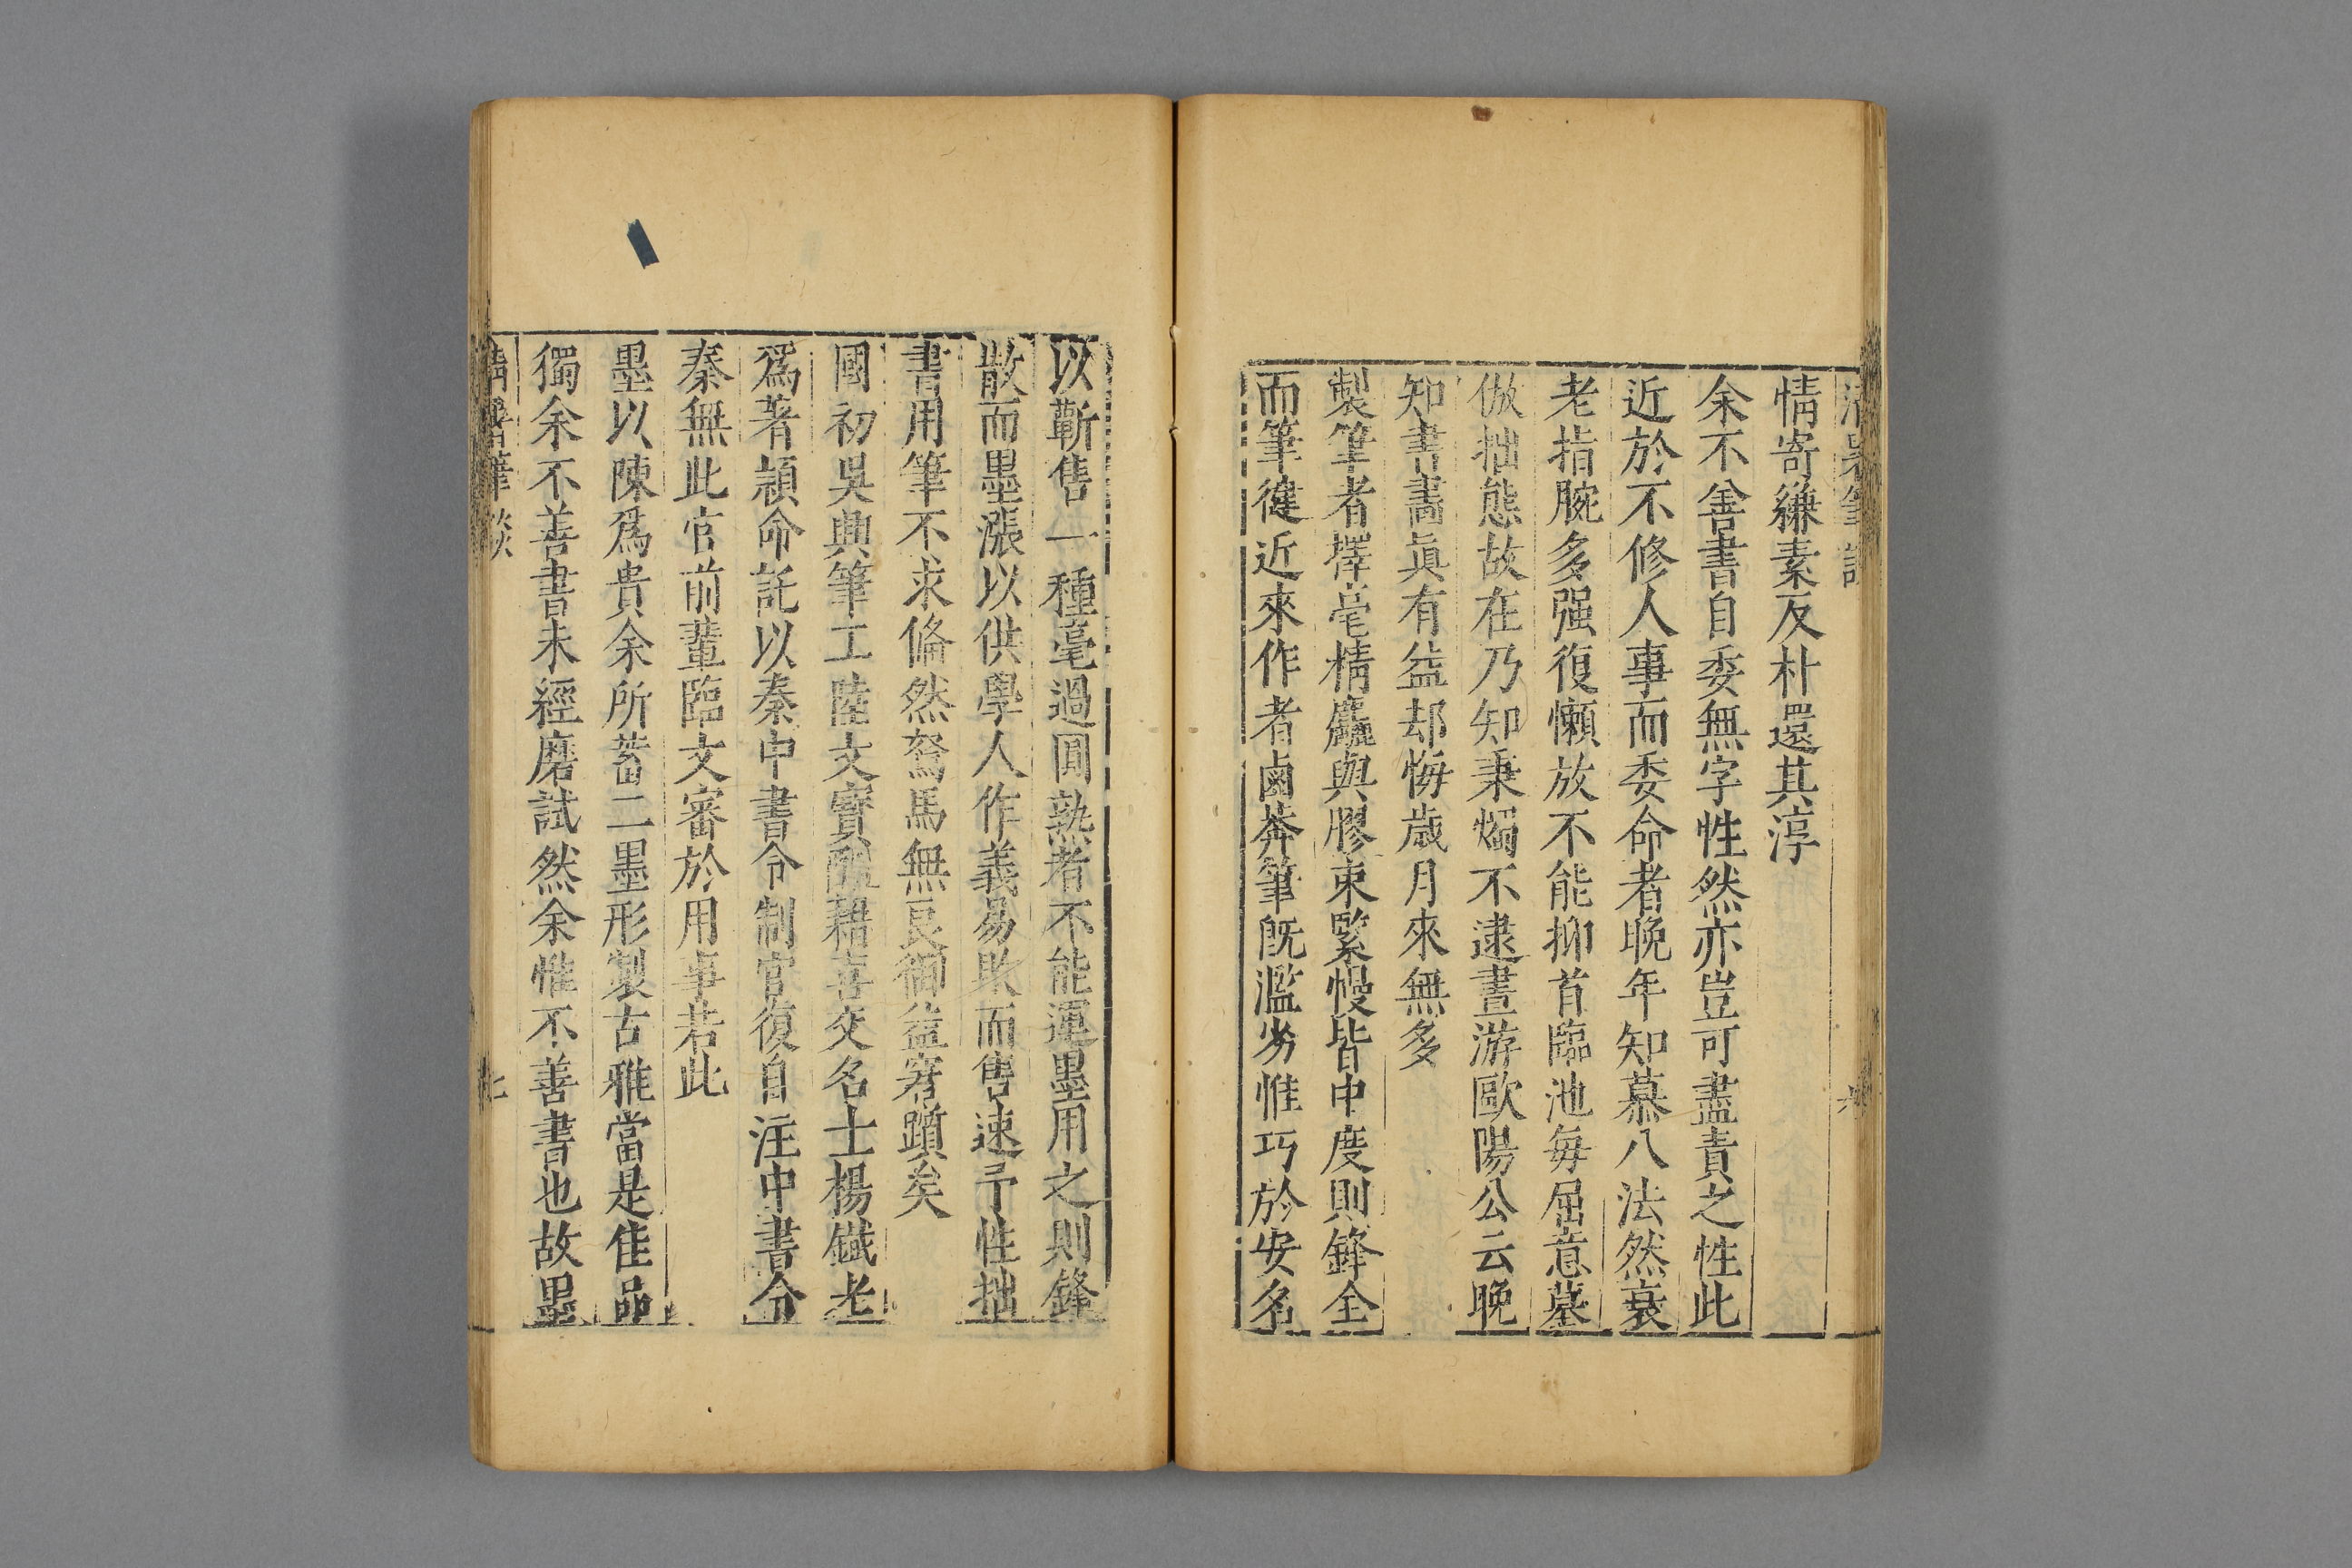 清暑筆談
六
情寄縑素反朴還其淳
余不善書自委無字性然亦豈可盡責之性此
近於不修人事而委命者晚年知慕八法然衰
老指腕多强復懶放不能抑首臨池每屈意墓
倣拙態故在乃知秉燭不逮晝游歐陽公云晚
知書畵眞有益却悔歲月來無多
製筆者擇毫精麤與膠束緊慢皆中度則鋒全
而筆健近來作者鹵莽筆旣濫劣惟巧於安名
以蘄售一種毫過圓熟者不能運墨用之則鋒
散而墨漲以供學人作義易敗而售速予性拙
書用筆不求備然駑馬無良御益窘躓矣
國初吳興筆工陸文寶醞藉喜交名士楊鐵老
爲著頴命託以秦中書令制官復自注中書令
秦無此官前輩臨文審於用事若此
墨以陳爲貴余所蓄二墨形製古雅當是佳品
獨余不善書未經磨試然余惟不善書也故墨
清暑筆談
七